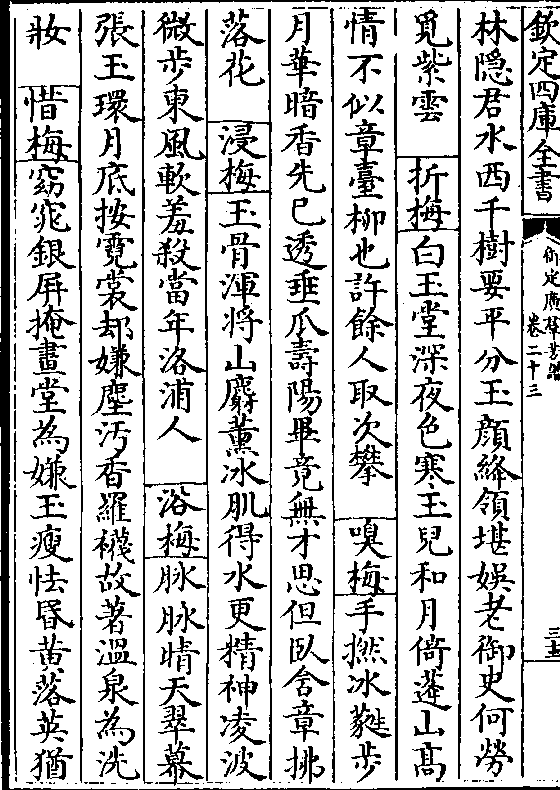 欽定四庫全書
御定廣羣芳譜
卷二十三
林隐君水西千樹要平分玉顔絳領堪娱老御史何勞
覓紫雲　折梅　白玉堂深夜色寒玉兒和月倚蓬山高
情不似章臺柳也許餘人取次攀　嗅梅　手撚冰蕤步
月華暗香先已透垂瓜壽陽畢竟無才思但臥含章拂
落花　浸梅　玉骨渾將山麝薰冰肌得水更精神凌波
微步東風軟羞殺當年洛浦人　浴梅　脉脉晴天翠幕
張玉環月底按霓裳却嫌塵汚香羅襪故著溫泉為洗
妝　惜梅　窈窕銀屏掩畫堂為嫌玉瘦怯昏黄落英猶